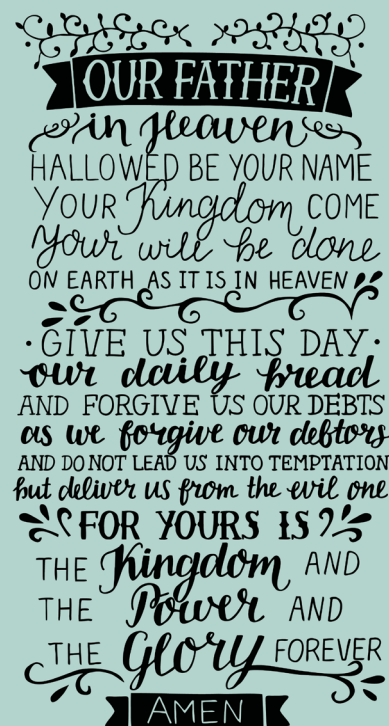 OUR FATHER
in Heaven
HALLOWED BE YOUR NAME
YOUR Kingdom COME
your will be done
ON EARTH AS IT IS IN HEAVEN
· GIVE US THIS DAY ·
our daily bread
AND FORGIVE US OUR DEBTS
as we forgive our debtors
AND DO NOT LEAD US INTO TEMPTATION
but deliver us from the evil one
FOR YOURS IS
THE Kingdom AND
THE Power AND
THE Glory FOREVER
AMEN